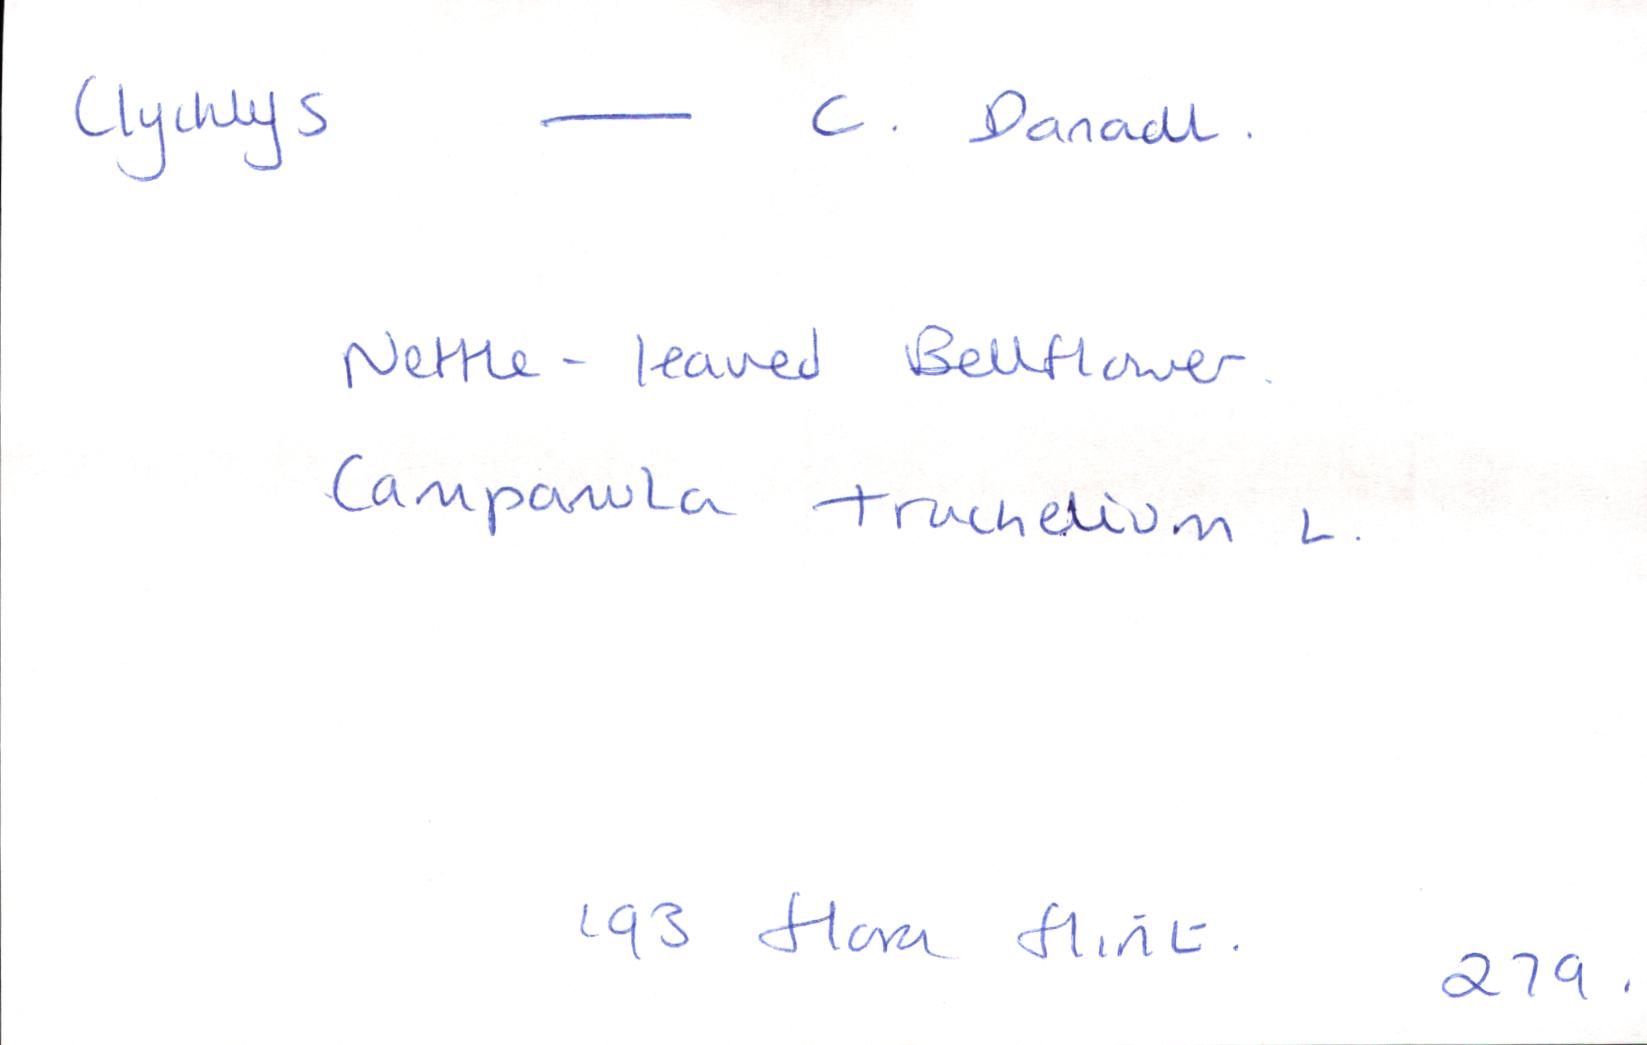 Clychlys — C. Danadl.
Nettle-leaved Bellflower.
Campanula trachelium L.
193 flora flint.
279.